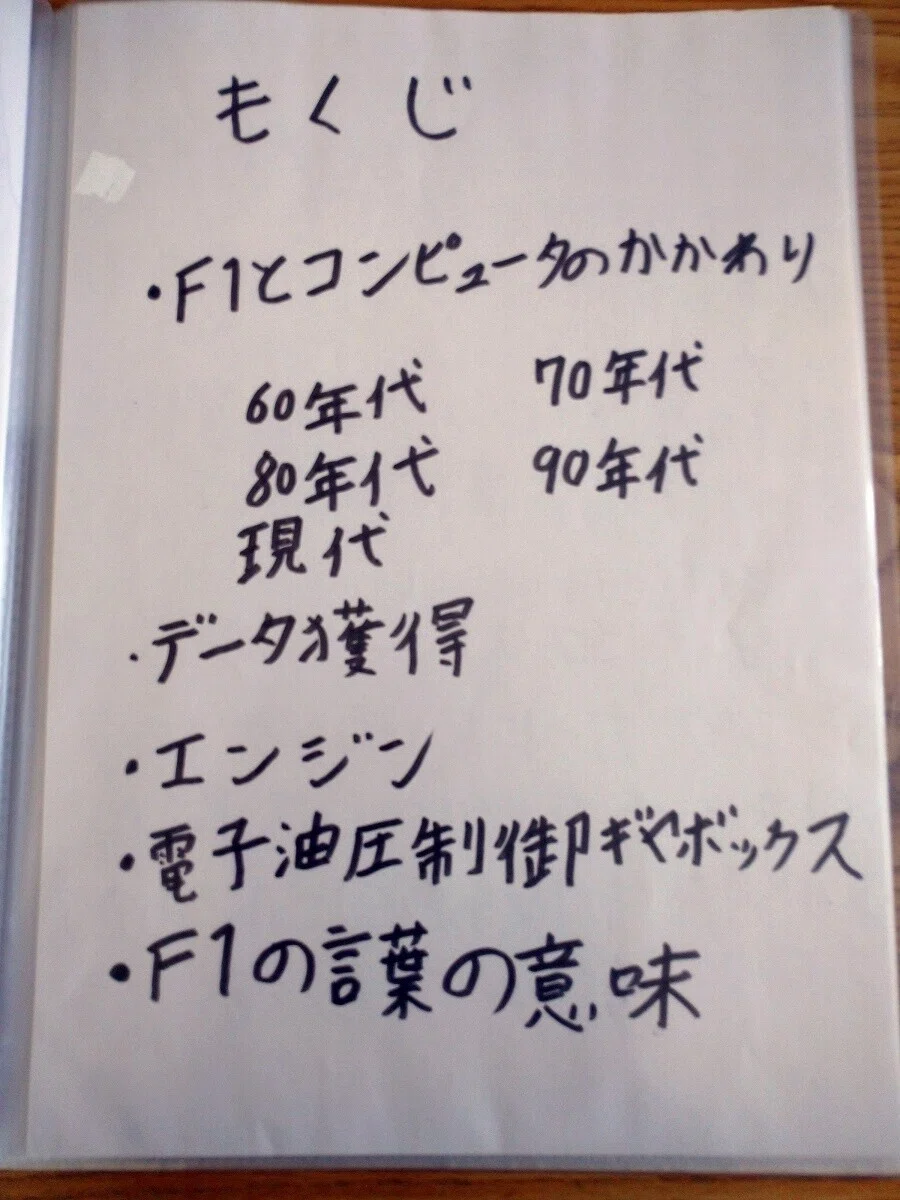 もくじ
・F1とコンピュータのかかわり
60年代 70年代
80年代 90年代
現代
・データ獲得
・エンジン
・電子油圧制御ギヤボックス
・F1の言葉の意味